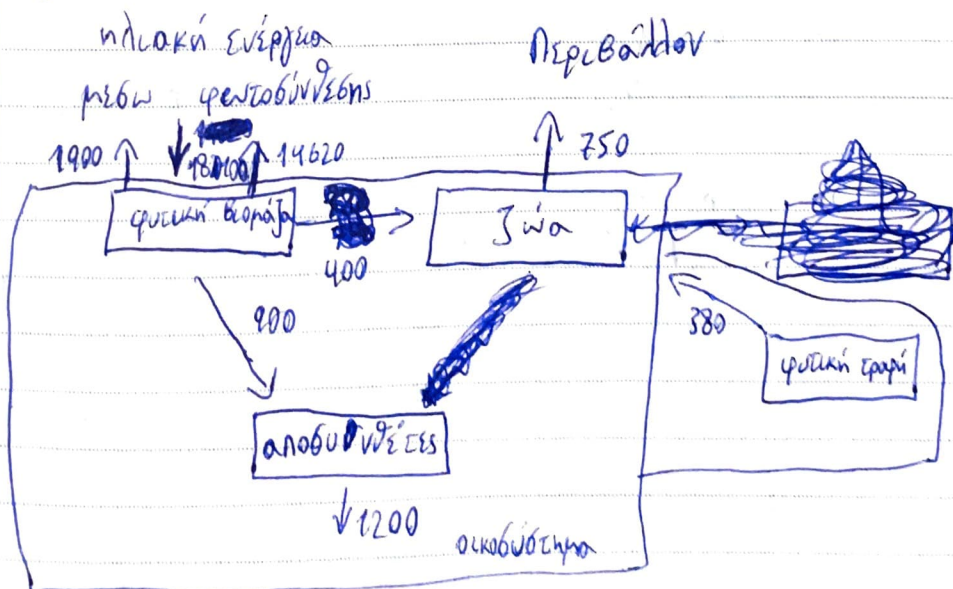 ηλιακή ενέργεια
μέσω φωτοσύνθεσης
Περιβάλλον
1900
14620
750
φυτική βιομάζα
400
ζώα
900
380
φυτική τροφή
αποσυνθέτες
1200
οικοσύστημα